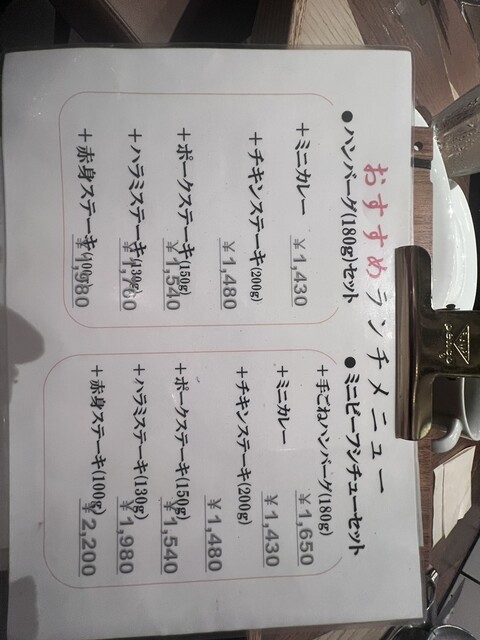 おすすめランチメニュー
●ハンバーグ(180g)セット
＋ミニカレー
￥1,430
＋チキンステーキ(200g)
￥1,480
＋ポークステーキ(150g)
￥1,540
＋ハラミステーキ(130g)
￥1,760
＋赤身ステーキ(100g)
￥1,980
●ミニビーフシチューセット
＋手ごねハンバーグ(180g)
￥1,650
＋ミニカレー
￥1,430
＋チキンステーキ(200g)
￥1,480
＋ポークステーキ(150g)
￥1,540
＋ハラミステーキ(130g)
￥1,980
＋赤身ステーキ(100g)
￥2,200